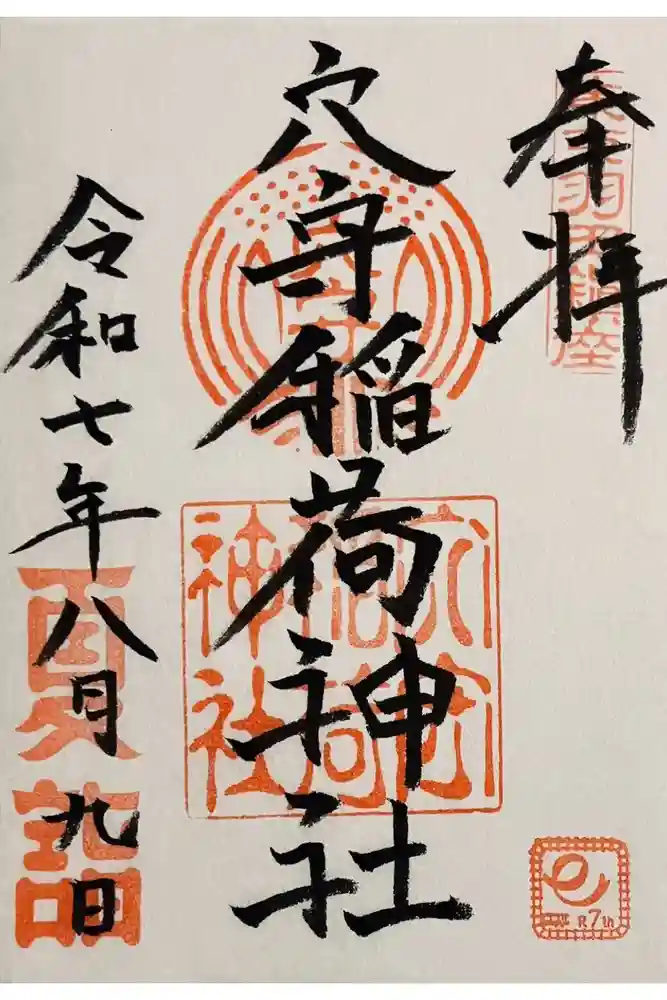 奉拝
穴守稲荷神社
令和七年八月九日
穴守稲荷神社
夏詣
R7th